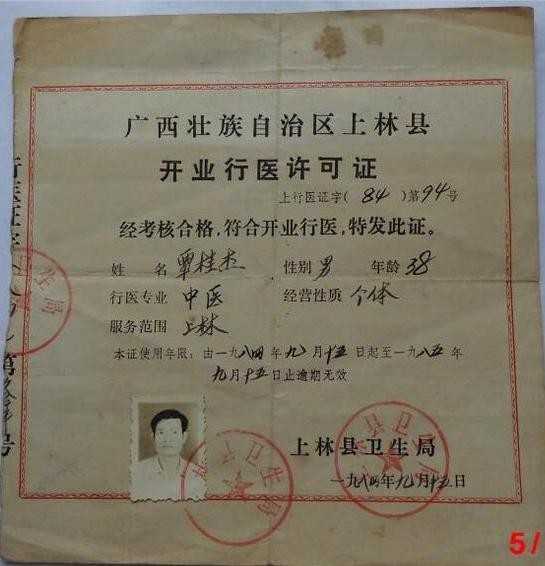 广西壮族自治区上林县
开业行医许可证
上行医证字(84)第94号
经考核合格,符合开业行医,特发此证。
姓名 覃桂杰 性别 男 年龄 38
行医专业 中医 经营性质 个体
服务范围 上林
本证使用年限:由一九八四年九月十五日起至一九八五年
九月十五日止逾期无效
上林县卫生局
一九八四年九月十五日
县卫生局
县卫生局
生局
行医证字
第
号
5/